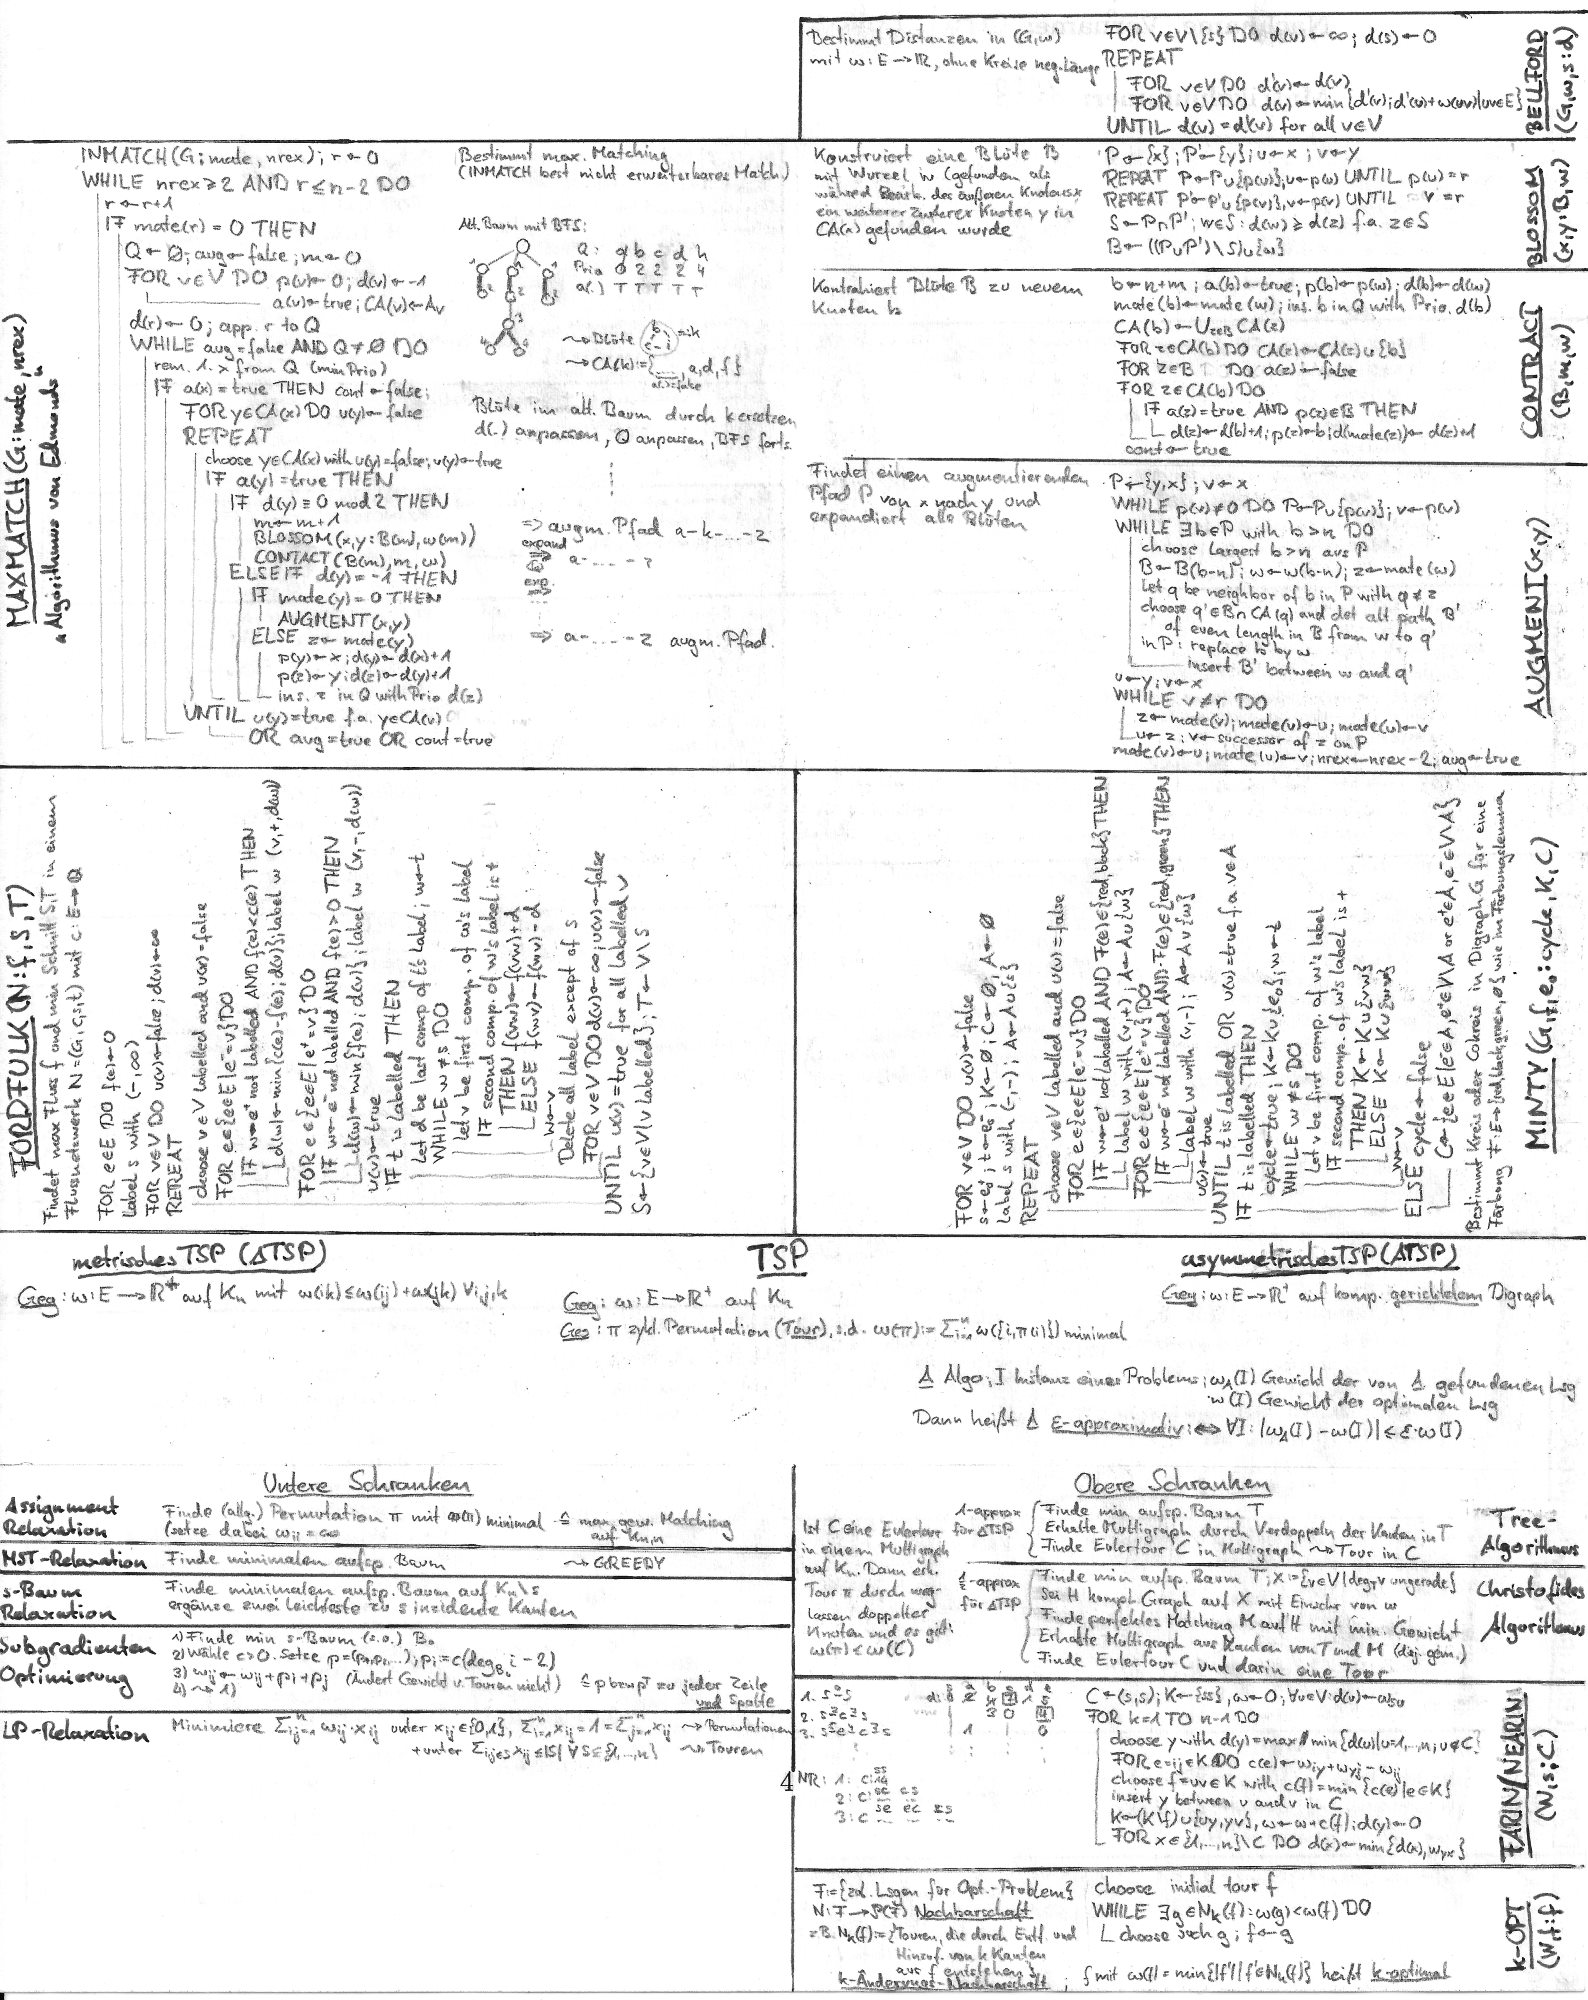 Bestimmt Distanzen in (G,w)
mit w: E → ℝ, ohne Kreise neg. Länge
FOR v∈V\{s} DO d(v)←∞; d(s)←0
REPEAT
FOR v∈V DO d'(v)←d(v)
FOR v∈V DO d(v)←min{d'(v); d'(u)+w(uv)|uv∈E}
UNTIL d(v)=d'(v) for all v∈V
BELLFORD
(G,w,s:d)
MAXMATCH(G:mate,nrex)
"Algorithmus von Edmonds"
INMATCH(G; mate, nrex); r←0
WHILE nrex≥2 AND r≤n-2 DO
r←r+1
IF mate(r)=0 THEN
Q←∅; aug←false; m←0
FOR v∈V DO p(v)←0; d(v)←-1
a(v)←true; CA(v)←Av
d(r)←0; app. r to Q
WHILE aug=false AND Q≠∅ DO
rem. 1. x from Q (min Prio)
IF a(x)=true THEN cont←false;
FOR y∈CA(x) DO u(y)←false
REPEAT
choose y∈CA(x) with u(y)=false; u(y)←true
IF a(y)=true THEN
IF d(y)≡0 mod 2 THEN
m←m+1
BLOSSOM(x,y:B(m),w(m))
CONTACT(B(m),m,w)
ELSE IF d(y)=-1 THEN
IF mate(y)=0 THEN
AUGMENT(x,y)
ELSE z←mate(y)
p(y)←x; d(y)←d(x)+1
p(z)←y; d(z)←d(y)+1
ins. z in Q with Prio d(z)
UNTIL u(y)=true f.a. y∈CA(v)
OR aug=true OR cont=true
Bestimmt max. Matching
(INMATCH best nicht erweiterbares Match.)
Alt. Baum mit BFS:
Q: a b c d h
Prio 0 2 2 2 4
a(.) T T T T T
⤳ Blüte =:k
⤳ CA(k):={..., a,d,f}
a(.)=false
Blüte im alt. Baum durch k ersetzen
d(.) anpassen, Q anpassen, BFS forts.
⇒ augm. Pfad a-k-...-z
expand
⇒ a-...-z
exp.
⇒ a-...-z augm. Pfad.
Konstruiert eine Blüte B
mit Wurzel w (gefunden als
während Bearb. des äußeren Knotens x
ein weiterer äußerer Knoten y in
CA(x) gefunden wurde
P←{x}; P'←{y}; u←x; v←y
REPEAT P←P∪{p(u)}; u←p(u) UNTIL p(u)=r
REPEAT P'←P'∪{p(v)}, v←p(v) UNTIL v=r
S←P∩P'; w∈S: d(w)≥d(z) f.a. z∈S
B←((P∪P')\S)∪{w}
BLOSSOM
(x,y:B,w)
Kontrahiert Blüte B zu neuem
Knoten b
b←n+m; a(b)←true; p(b)←p(w); d(b)←d(w)
mate(b)←mate(w); ins. b in Q with Prio. d(b)
CA(b)←∪z∈B CA(z)
FOR z∈CA(b) DO CA(z)←CA(z)∪{b}
FOR z∈B DO a(z)←false
FOR z∈CA(b) DO
IF a(z)=true AND p(z)∈B THEN
d(z)←d(b)+1; p(z)←b; d(mate(z))←d(z)+1
cont←true
CONTRACT
(B,m,w)
Findet einen augmentierenden
Pfad P von x nach y und
expandiert alle Blüten
P←{y,x}; v←x
WHILE p(v)≠0 DO P←P∪{p(v)}; v←p(v)
WHILE ∃b∈P with b>n DO
choose largest b>n aus P
B←B(b-n); w←w(b-n); z←mate(w)
Let q be neighbor of b in P with q≠z
choose q'∈B∩CA(q) and det alt path B'
of even length in B from w to q'
in P: replace b by w
insert B' between w and q'
u←y; v←x
WHILE v≠r DO
z←mate(v); mate(v)←u; mate(u)←v
u←z; v←successor of z on P
mate(v)←u; mate(u)←v; nrex←nrex-2; aug←true
AUGMENT(x,y)
FORDFULK(N:f,S,T)
Findet max Fluss f und min Schnitt S,T in einem
Flussnetzwerk N=(G,c,s,t) mit c: E→ℚ
FOR e∈E DO f(e)←0
Label s with (-,∞)
FOR v∈V DO u(v)←false; d(v)←∞
REPEAT
choose v∈V labelled and u(v)=false
FOR e∈{e∈E|e⁻=v} DO
IF w←e⁺ not labelled AND f(e)<c(e) THEN
d(w)←min{c(e)-f(e); d(v)}; label w (v,+,d(w))
FOR e∈{e∈E|e⁺=v} DO
IF w←e⁻ not labelled AND f(e)>0 THEN
d(w)←min{f(e); d(v)}; label w (v,-,d(w))
u(v)←true
IF t is labelled THEN
Let d be last comp of t's label; w←t
WHILE w≠s DO
Let v be first comp. of w's label
IF second comp. of w's label is +
THEN f(vw)←f(vw)+d
ELSE f(wv)←f(wv)-d
w←v
Delete all label except of s
FOR v∈V DO d(v)←∞; u(v)←false
UNTIL u(v)=true for all labelled v
S←{v∈V|v labelled}; T←V\S
FOR v∈V DO u(v)←false
s←e₀⁺; t←e₀⁻; K←∅; C←∅, A←∅
label s with (-,-); A←A∪{s}
REPEAT
choose v∈V labelled and u(v)=false
FOR e∈{e∈E|e⁻=v} DO
IF w←e⁺ not labelled AND F(e)∈{red,black} THEN
label w with (v,+); A←A∪{w}
FOR e∈{e∈E|e⁺=v} DO
IF w←e⁻ not labelled AND F(e)∈{red,green} THEN
label w with (v,-); A←A∪{w}
u(v)←true
UNTIL t is labelled OR u(v)=true f.a. v∈A
IF t is labelled THEN
cycle←true; K←K∪{e₀}; w←t
WHILE w≠s DO
Let v be first comp. of w's label
IF second comp. of w's label is +
THEN K←K∪{vw}
ELSE K←K∪{wv}
w←v
ELSE cycle←false
C←{e∈E|e⁻∈A, e⁺∈V\A or e⁺∈A, e⁻∈V\A}
Bestimmt Kreis oder Cokreis in Digraph G für eine
Färbung F: E→{red,black,green,∅} wie im Färbungslemma
MINTY(G,F,e₀:cycle,K,C)
metrisches TSP (ΔTSP)
TSP
asymmetrisches TSP (ATSP)
Geg: w: E→ℝ⁺ auf Kn mit w(ik)≤w(ij)+w(jk) ∀i,j,k
Geg: w: E→ℝ⁺ auf Kn
Ges: π zykl. Permutation (Tour), s.d. w(π):=Σⁿi=1 w({i,π(i)}) minimal
Geg: w: E→ℝ⁺ auf komp. gerichtetem Digraph
A Algo; I Instanz eines Problems; wA(I) Gewicht der von A gefundenen Lsg
w(I) Gewicht der optimalen Lsg
Dann heißt A ε-approximativ :⇔ ∀I: |wA(I)-w(I)|≤ε·w(I)
Untere Schranken
Assignment
Relaxation
Finde (allg.) Permutation π mit w(π) minimal ≙ max. gew. Matching
(setze dabei wii=∞ auf Kn,n
MST-Relaxation Finde minimalen aufsp. Baum ⤳ GREEDY
s-Baum
Relaxation
Finde minimalen aufsp. Baum auf Kn\s
ergänze zwei leichteste zu s inzidente Kanten
Subgradienten
Optimierung
1) Finde min s-Baum (s.o.) B₀
2) Wähle c>0. Setze p=(p₁,p₂,...); pi=c(degB₀ i-2)
3) wij←wij+pi+pj (Ändert Gewicht v. Touren nicht) ≙ p bzw pᵀ zu jeder Zeile
und Spalte
4) ⤳ 1)
LP-Relaxation
Minimiere Σⁿi,j=1 wij·xij unter xij∈{0,1}, Σⁿi=1 xij=1=Σⁿj=1 xij ⤳ Permutationen
+ unter Σi,j∈S xij≤|S| ∀S⊆{1,...,n} ⤳ Touren
4
Obere Schranken
Ist C eine Eulertour
in einem Multigraph
auf Kn. Dann erh.
Tour π durch weg-
lassen doppelter
Knoten und es gilt:
w(π)≤w(C)
1-approx
für ΔTSP
Finde min aufsp. Baum T
Erhalte Multigraph durch Verdoppeln der Kanten in T
Finde Eulertour C in Multigraph ⤳ Tour in C
Tree-
Algorithmus
½-approx
für ΔTSP
Finde min aufsp. Baum T; X:={v∈V|degT v ungerade}
Sei H kompl. Graph auf X mit Einschr von w
Finde perfektes Matching M auf H mit min. Gewicht
Erhalte Multigraph aus Kanten von T und M (disj. gem.)
Finde Eulertour C und darin eine Tour
Christofides
Algorithmus
C←(s,s); K←{ss}, w←0; ∀u∈V: d(u)←wsu
FOR k=1 TO n-1 DO
choose y with d(y)=max/min{d(u)|u=1,...,n; u∉C}
FOR e=ij∈K DO c(e)←wiy+wyj-wij
choose f=uv∈K with c(f)=min{c(e)|e∈K}
insert y between u and v in C
K←(K\f)∪{uy,yv}, w←w+c(f); d(y)←0
FOR x∈{1,...,n}\C DO d(x)←min{d(x),wyx}
FARIN/NEARIN
(W,s:C)
F={zul. Lsgen für Opt.-Problem}
N: F→P(F) Nachbarschaft
z.B. Nk(f):={Touren, die durch Entf. und
Hinzuf. von k Kanten
aus f entstehen}
k-Änderungs-Nachbarschaft
choose initial tour f
WHILE ∃g∈Nk(f): w(g)<w(f) DO
choose such g; f←g
f mit w(f)=min{|f'| | f'∈Nk(f)} heißt k-optimal
k-OPT
(W,f:f)